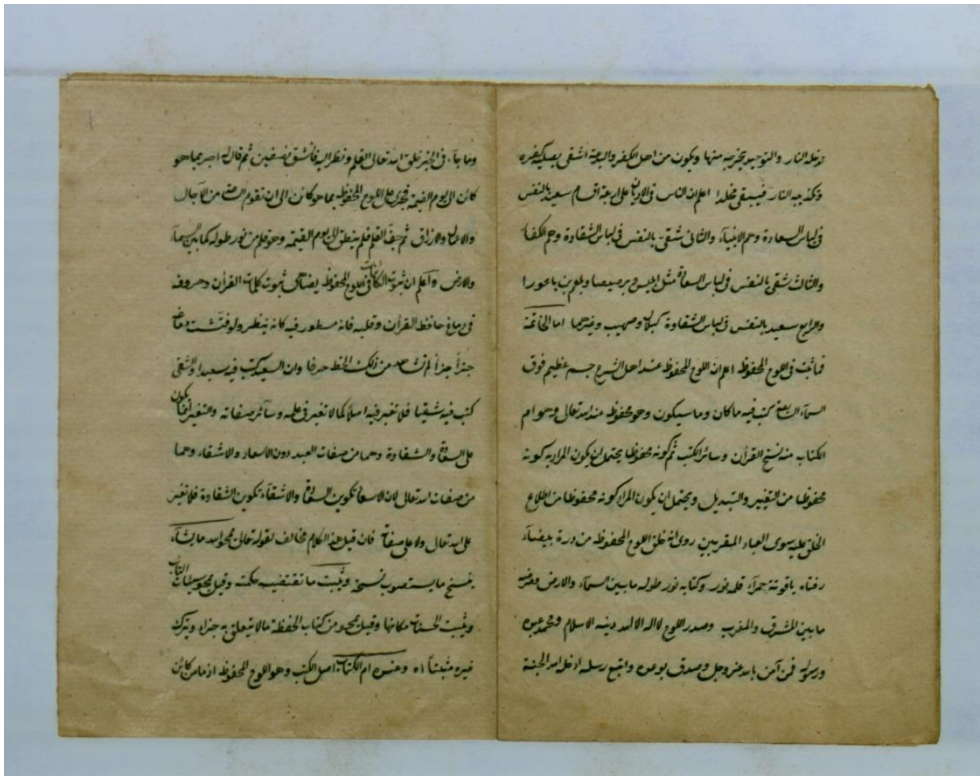 ادخله النار والتوحيد يخرجه منها ويكون من اهل الكفر والبدعة اشقى يصليه كفره
وتكذيبه النار فيبقى مخلدا اعلم ان الناس فى الازل على اربعة اقسام سعيد بالنفس
فى لباس السعادة وهم الانبياء والثانى شقى بالنفس فى لباس الشقاوة وهم الكفار
والثالث شقى بالنفس فى لباس السعادة مثل ابليس وبرصيصا وبلعم بن باعورا
والرابع سعيد بالنفس فى لباس الشقاوة كبلال وصهيب وغيرهما اما الخاتمة
فما ثبت فى اللوح المحفوظ اعلم ان اللوح المحفوظ عند اهل الشرع جسم عظيم فوق
السماء السابعة كتب فيه ما كان وما سيكون وهو محفوظ عند الله تعالى وهو ام
الكتاب منه نسخ القرآن وسائر الكتب ثم كونه محفوظا يحتمل ان يكون المراد به كونه
محفوظا من التغيير والتبديل ويحتمل ان يكون المراد كونه محفوظا من اطلاع
الخلق عليه سوى العباد المقربين روى انه خلق اللوح المحفوظ من درة بيضاء
دفتاه ياقوتة حمراء قلمه نور وكتابه نور طوله ما بين السماء والارض وعرضه
ما بين المشرق والمغرب وصدر اللوح لا اله الا الله دينه الاسلام ومحمد عبده
ورسوله فمن آمن بالله عز وجل وصدق بوعده واتبع رسله ادخله الله الجنة
وما جاء فى الخبر خلق الله تعالى القلم ونظر اليه فانشق نصفين ثم قال له اجر بما هو
كائن الى يوم القيمة فجرى على اللوح المحفوظ بما هو كائن الى ان تقوم الساعة من الآجال
والاعمال والارزاق ثم جف القلم فلم ينطق الى يوم القيمة وهو قلم من نور طوله كما بين السماء
والارض واعلم ان ثبوت الكائنات فى اللوح المحفوظ يضاهى ثبوت كلمات القرآن وحروفه
فى دماغ حافظ القرآن وقلبه فانه مسطور فيه كانه ينظر ولو فتشت دماغه
جزأ جزأ لم تشاهد من ذلك الخط حرفا وان السعيد كتب فيه سعيدا والشقى
كتب فيه شقيا فلا تغير فيه اصلا كما لا تغير فى علمه وسائر صفاته والتغير انما يكون
على السعادة والشقاوة وهما من صفات العبد دون الاسعاد والاشقاء وهما
من صفات الله تعالى لان الاسعاد تكوين السعادة والاشقاء تكوين الشقاوة فلا تغير
على الله تعالى ولا على صفاته فان قيل هذا الكلام مخالف لقوله تعالى يمحو الله ما يشاء
ينسخ ما يستصوب نسخه ويثبت ما تقتضيه حكمته وقيل يمحو سيئات التائب
ويثبت الحسنات مكانها وقيل يمحو من كتاب الحفظة ما لا يتعلق به جزاء ويترك
غيره مثبتا اه وعنده ام الكتاب اصل الكتب وهو اللوح المحفوظ اذ ما من كائن